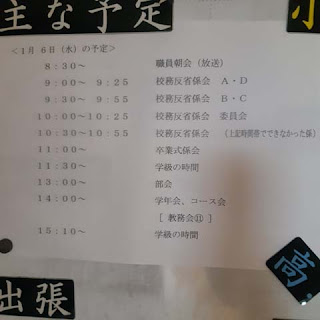 主な予定
＜1月 6日（水）の予定＞
8：30～ 職員朝会（放送）
9：00～ 9：25 校務反省係会 A・D
9：30～ 9：55 校務反省係会 B・C
10：00～10：25 校務反省係会 委員会
10：30～10：55 校務反省係会 （上記時間帯でできなかった係）
11：00～ 卒業式係会
11：30～ 学級の時間
13：00～ 部会
14：00～ 学年会、コース会
［ 教務会⑪ ］
15：10～ 学級の時間
高
出張